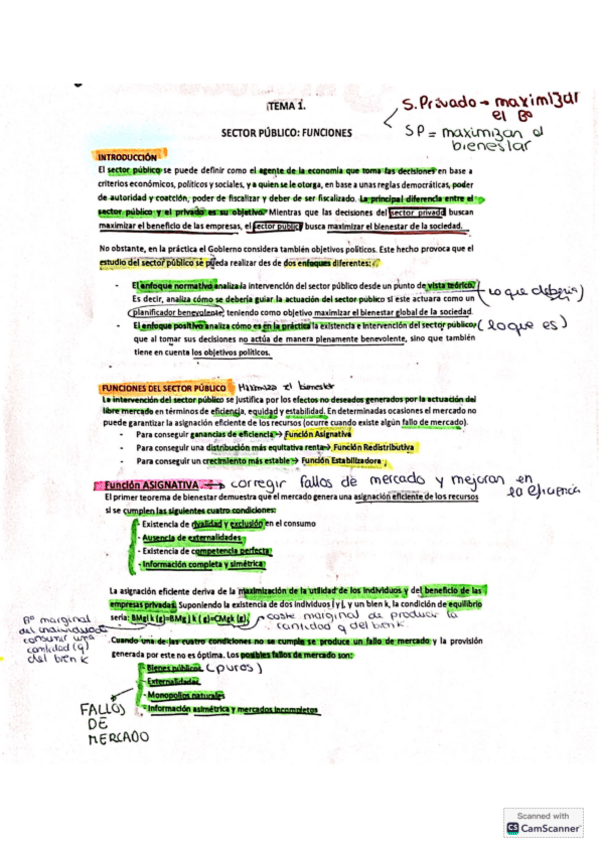 TEMA 1.
S. Privado → maximizar
el Bº
SP = maximizan el
bienestar
SECTOR PÚBLICO: FUNCIONES
INTRODUCCIÓN
El sector público se puede definir como el agente de la economía que toma las decisiones en base a
criterios económicos, políticos y sociales, y a quien se le otorga, en base a unas reglas democráticas, poder
de autoridad y coacción, poder de fiscalizar y deber de ser fiscalizado. La principal diferencia entre el
sector público y el privado es su objetivo. Mientras que las decisiones del sector privado buscan
maximizar el beneficio de las empresas, el sector público busca maximizar el bienestar de la sociedad.
No obstante, en la práctica el Gobierno considera también objetivos políticos. Este hecho provoca que el
estudio del sector público se pueda realizar des de dos enfoques diferentes:
- El enfoque normativo analiza la intervención del sector público desde un punto de vista teórico.
(lo que debería)
Es decir, analiza cómo se debería guiar la actuación del sector público si este actuara como un
planificador benevolente, teniendo como objetivo maximizar el bienestar global de la sociedad.
- El enfoque positivo analiza cómo es en la práctica la existencia e intervención del sector público,
(lo que es)
que al tomar sus decisiones no actúa de manera plenamente benevolente, sino que también
tiene en cuenta los objetivos políticos.
FUNCIONES DEL SECTOR PÚBLICO
Maximiza el bienestar
La intervención del sector público se justifica por los efectos no deseados generados por la actuación del
libre mercado en términos de eficiencia, equidad y estabilidad. En determinadas ocasiones el mercado no
puede garantizar la asignación eficiente de los recursos (ocurre cuando existe algún fallo de mercado).
- Para conseguir ganancias de eficiencia→ Función Asignativa
- Para conseguir una distribución más equitativa renta→ Función Redistributiva
- Para conseguir un crecimiento más estable→ Función Estabilizadora
Función ASIGNATIVA → corregir fallos de mercado y mejoran en
la eficiencia
El primer teorema de bienestar demuestra que el mercado genera una asignación eficiente de los recursos
si se cumplen las siguientes cuatro condiciones:
- Existencia de rivalidad y exclusión en el consumo
- Ausencia de externalidades
- Existencia de competencia perfecta
- Información completa y simétrica
La asignación eficiente deriva de la maximización de la utilidad de los individuos y del beneficio de las
empresas privadas. Suponiendo la existencia de dos individuos i y j, y un bien k, la condición de equilibrio
sería: BMgi k (g)=BMg j k (g)=CMgk (g)
coste marginal de producir la
cantidad q del bien k.
Bº marginal
del individuo de
consumir una
cantidad (q)
del bien k
Cuando una de las cuatro condiciones no se cumple se produce un fallo de mercado y la provisión
generada por este no es óptima. Los posibles fallos de mercado son:
- Bienes públicos (puros)
- Externalidades
- Monopolios naturales
- Información asimétrica y mercados incompletos
FALLOS
DE
MERCADO
Scanned with
CS CamScanner